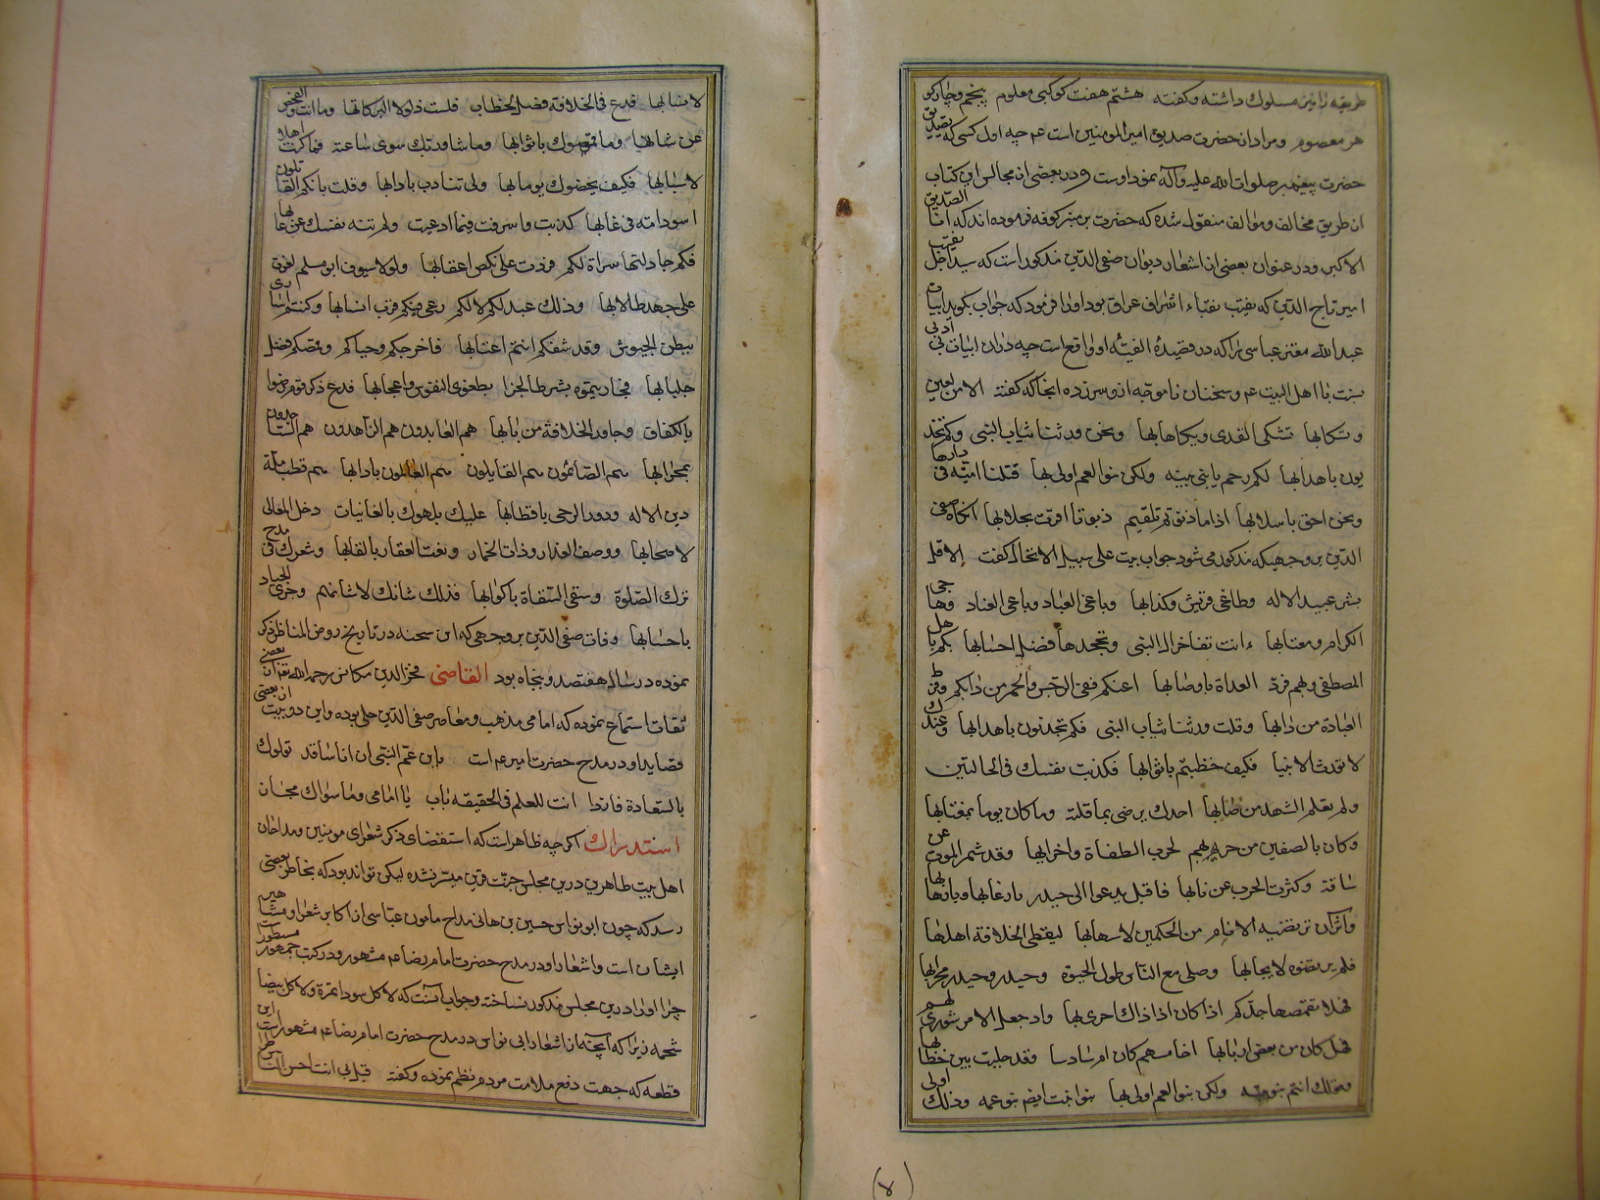 طریقه را نیز مسلوک داشته و گفته هشتم هفت کوکبی معلوم پنجم و چار کو
هر معصوم و مراد از حضرت صدیق امیر المومنین است عم چه اول کسی که تصدیق
حضرت پیغمبر صلوات الله علیه وآله نموده اوست و در بعضی از مجالس این کتاب
از طریق مخالف و مؤالف منقول شده که حضرت بر منبر کوفه فرموده اند که انا الصدیق
الاکبر و در عنوان بعضی از اشعار دیوان صفی الدین مذکور است که سید اجل نقیب
امیر تاج الدین که نقیب نقباء اشراف عراق بود او را فرمود که جواب بگوید ابیات
عبدالله معتز عباسی را که در قصیده او واقع است چه در ان ابیات بی ادبی
نسبت با اهل البیت عم و سخنان ناموجه ازو سر زده انجا که گفته الا من لعین
و تسکابها تشکی القذی و بکاها بها ونحن ورثنا ثیاب النبی وکم تجذ
بون باهدابها لکم رحم یا بنی بنته ولکن بنو العم اولی بها قتلنا امیّة فی دارها
ونحن احق باسلابها اذا ما دنوتم تلقیتم زبونا اقرت بجلابها
الدین بر وجهیکه مذکور می شود جواب بیت علی سبیل الارتجال گفت الا قل
بشر عبید الاله وطاغی قریش وکذابها وباغی العباد وباغی العناد وهاجی
الکرام ومغتابها ءانت تفاخر ال النبی وتجحدها فضل احسابها بکم باهل
المصطفی ام بهم فرد العداة باوصابها اعنکم نفی الرجس ام عنهم
العبادة من دابها وقلت ورثنا ثیاب النبی فکم تجذبون باهدابها وعندک
لا تورث الانبیا فکیف حظیتم باثوابها فکذبت نفسک فی الحالتین
ولم یعلم الشهد من صابها اجدک یرضی بما قلته وما کان یوما بمرتابها
وکان بالصفین من حزبهم لحرب الطغاة واحزابها وقد شمر الموت عن
ساقه وکشرت الحرب عن نابها فاقبل یدعوا الی حیدر بارغابها وبارهابها
وآثر ان ترتضیه الانام من الحکمین لاسهابها لیعطی الخلافة اهلها
فلم یرتضوه لایجابها وصلی مع الناس طول الحیوة وحیدر فی محرابها
فهلا تقمصها جدکم اذا کان اذ ذاک احری بها واذ جعل الامر شوری لهم
فهل کان من بعض اربابها اخامسهم کان ام سادسا وقد جلیت بین خطابها
وقولک انتم بنو بنته ولکن بنو العم اولی بها بنو البنت ایضا بنو عمه وذلک اولی
لانسابها فدع فی الخلافة فصل الخطاب فلیست ذلولا لرکابها وما انت والفحص
عن شانها وما قمصوک باثوابها وما شاورتک سوی ساعة فما کنت اهلا
لاسبابها فکیف یخصوک یوما بها ولم تتادب بادابها وقلت بانکم القاتلون
اسود امیه فی غابها کذبت واسرفت فیما ادعیت ولم تنه نفسک عن عابها
فکم حاولتها سراة لکم فردت علی نکص اعقابها ولولا سیوف ابو مسلم لعزت
علی جهد طلابها وذلک عبد لکم لا لکم رعی فیکم قرب انسابها وکنتم اساری
ببطن الحبوس وقد شفکم لثم اعتابها فاخرجکم وحباکم وقمصکم فضل
جلبابها فجازیتموه بشر الجزا بطغوی النفوس واعجابها فدع ذکر قوم رضوا
بالکفاف وجاوا الخلافة من بابها هم العابدون هم الزاهدون هم الساجدون
بمحرابها هم الصائمون هم القایلون هم العالمون بادابها هم قطب ملة
دین الاله ودور الرحی باقطابها علیک بلهوک بالغانیات وخل المعالی
لاصحابها ووصف العذار وذات الخمار ونعت العقار بالقابها وشعرک فی مدح
ترک الصلوة وسقی السقاة باکوابها فذلک شانک لا شانهم وجری الجیاد
باحسابها وفات صفی الدین بر وجهی که ابن شحنه در تاریخ روض المناظر ذکر
نموده در سال هفتصد و پنجاه بود القاضی فخر الدین مکانس رحمه الله تعالی از بعضی
ثقات استماع نموده که امامی مذهب و معاصر صفی الدین حلی بوده و این دو بیت از بعضی
قصاید او در مدح حضرت امیر عم است یا بن عم النبی ان اناسا قد تولوک
بالسعادة فازوا انت للعلم فی الحقیقه باب یا امامی وما سواک مجاز
استدراک اگر چه ظاهر است که استقصای ذکر شعرای مومنین و مداحان
اهل بیت طاهرین درین مجلس جنت قرین میسر نشده لیکن تواند بود که بخاطر بعضی
رسد که چون ابو نواس حسن بن هانی مداح مامون عباسی از اکابر شعرا و مشاهیر
ایشان است و اشعار او در مدح حضرت امام رضا عم مشهور و در کتب جمهور مسطور
چرا او را درین مجلس مذکور نساخته و جواب آنست که لا کل سوداء تمرة ولا کل بیضا
شحمه زیرا که آنچه از اشعار ابی نواس در مدح حضرت امام رضا عم مشهور است این
قطعه که جهت دفع ملامت مردم نظم نموده و گفته قیل لی انت احسن الناس طرا
(۸)